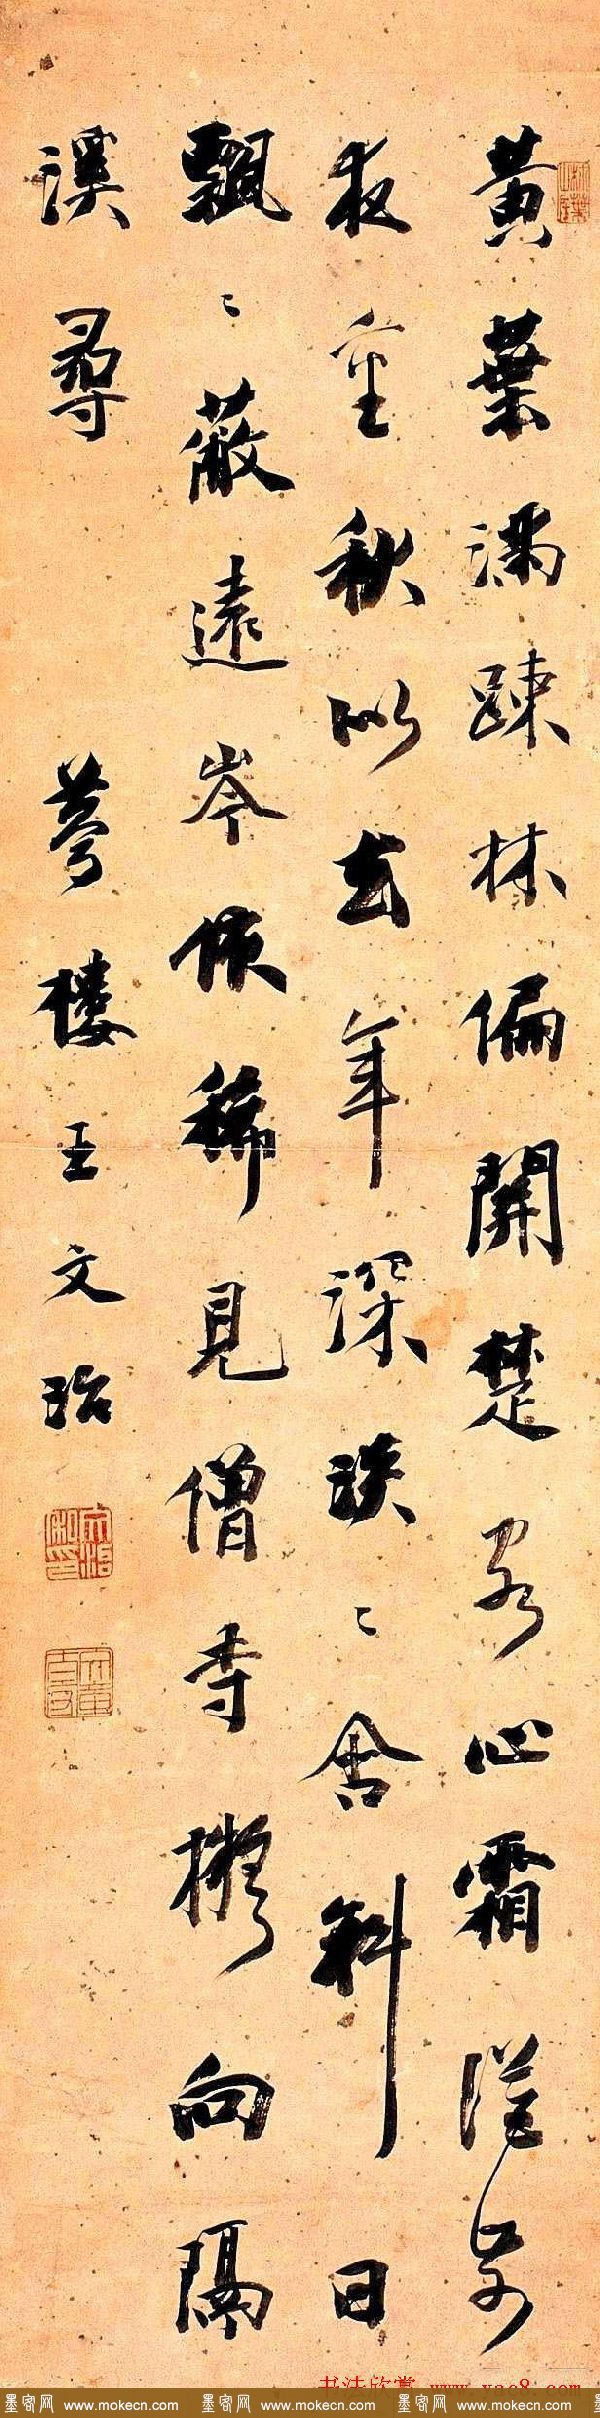 黃葉滿踈林偏開楚客心霜從前
夜重秋似去年深淡〻含斜日
飄〻蔽遠岑依稀見僧寺擬向隔
溪尋 夢樓王文治
书法欣赏 www.yac8.com
墨客网 www.mokecn.com 墨客网 www.mokecn.com 墨客网 www.mokecn.com